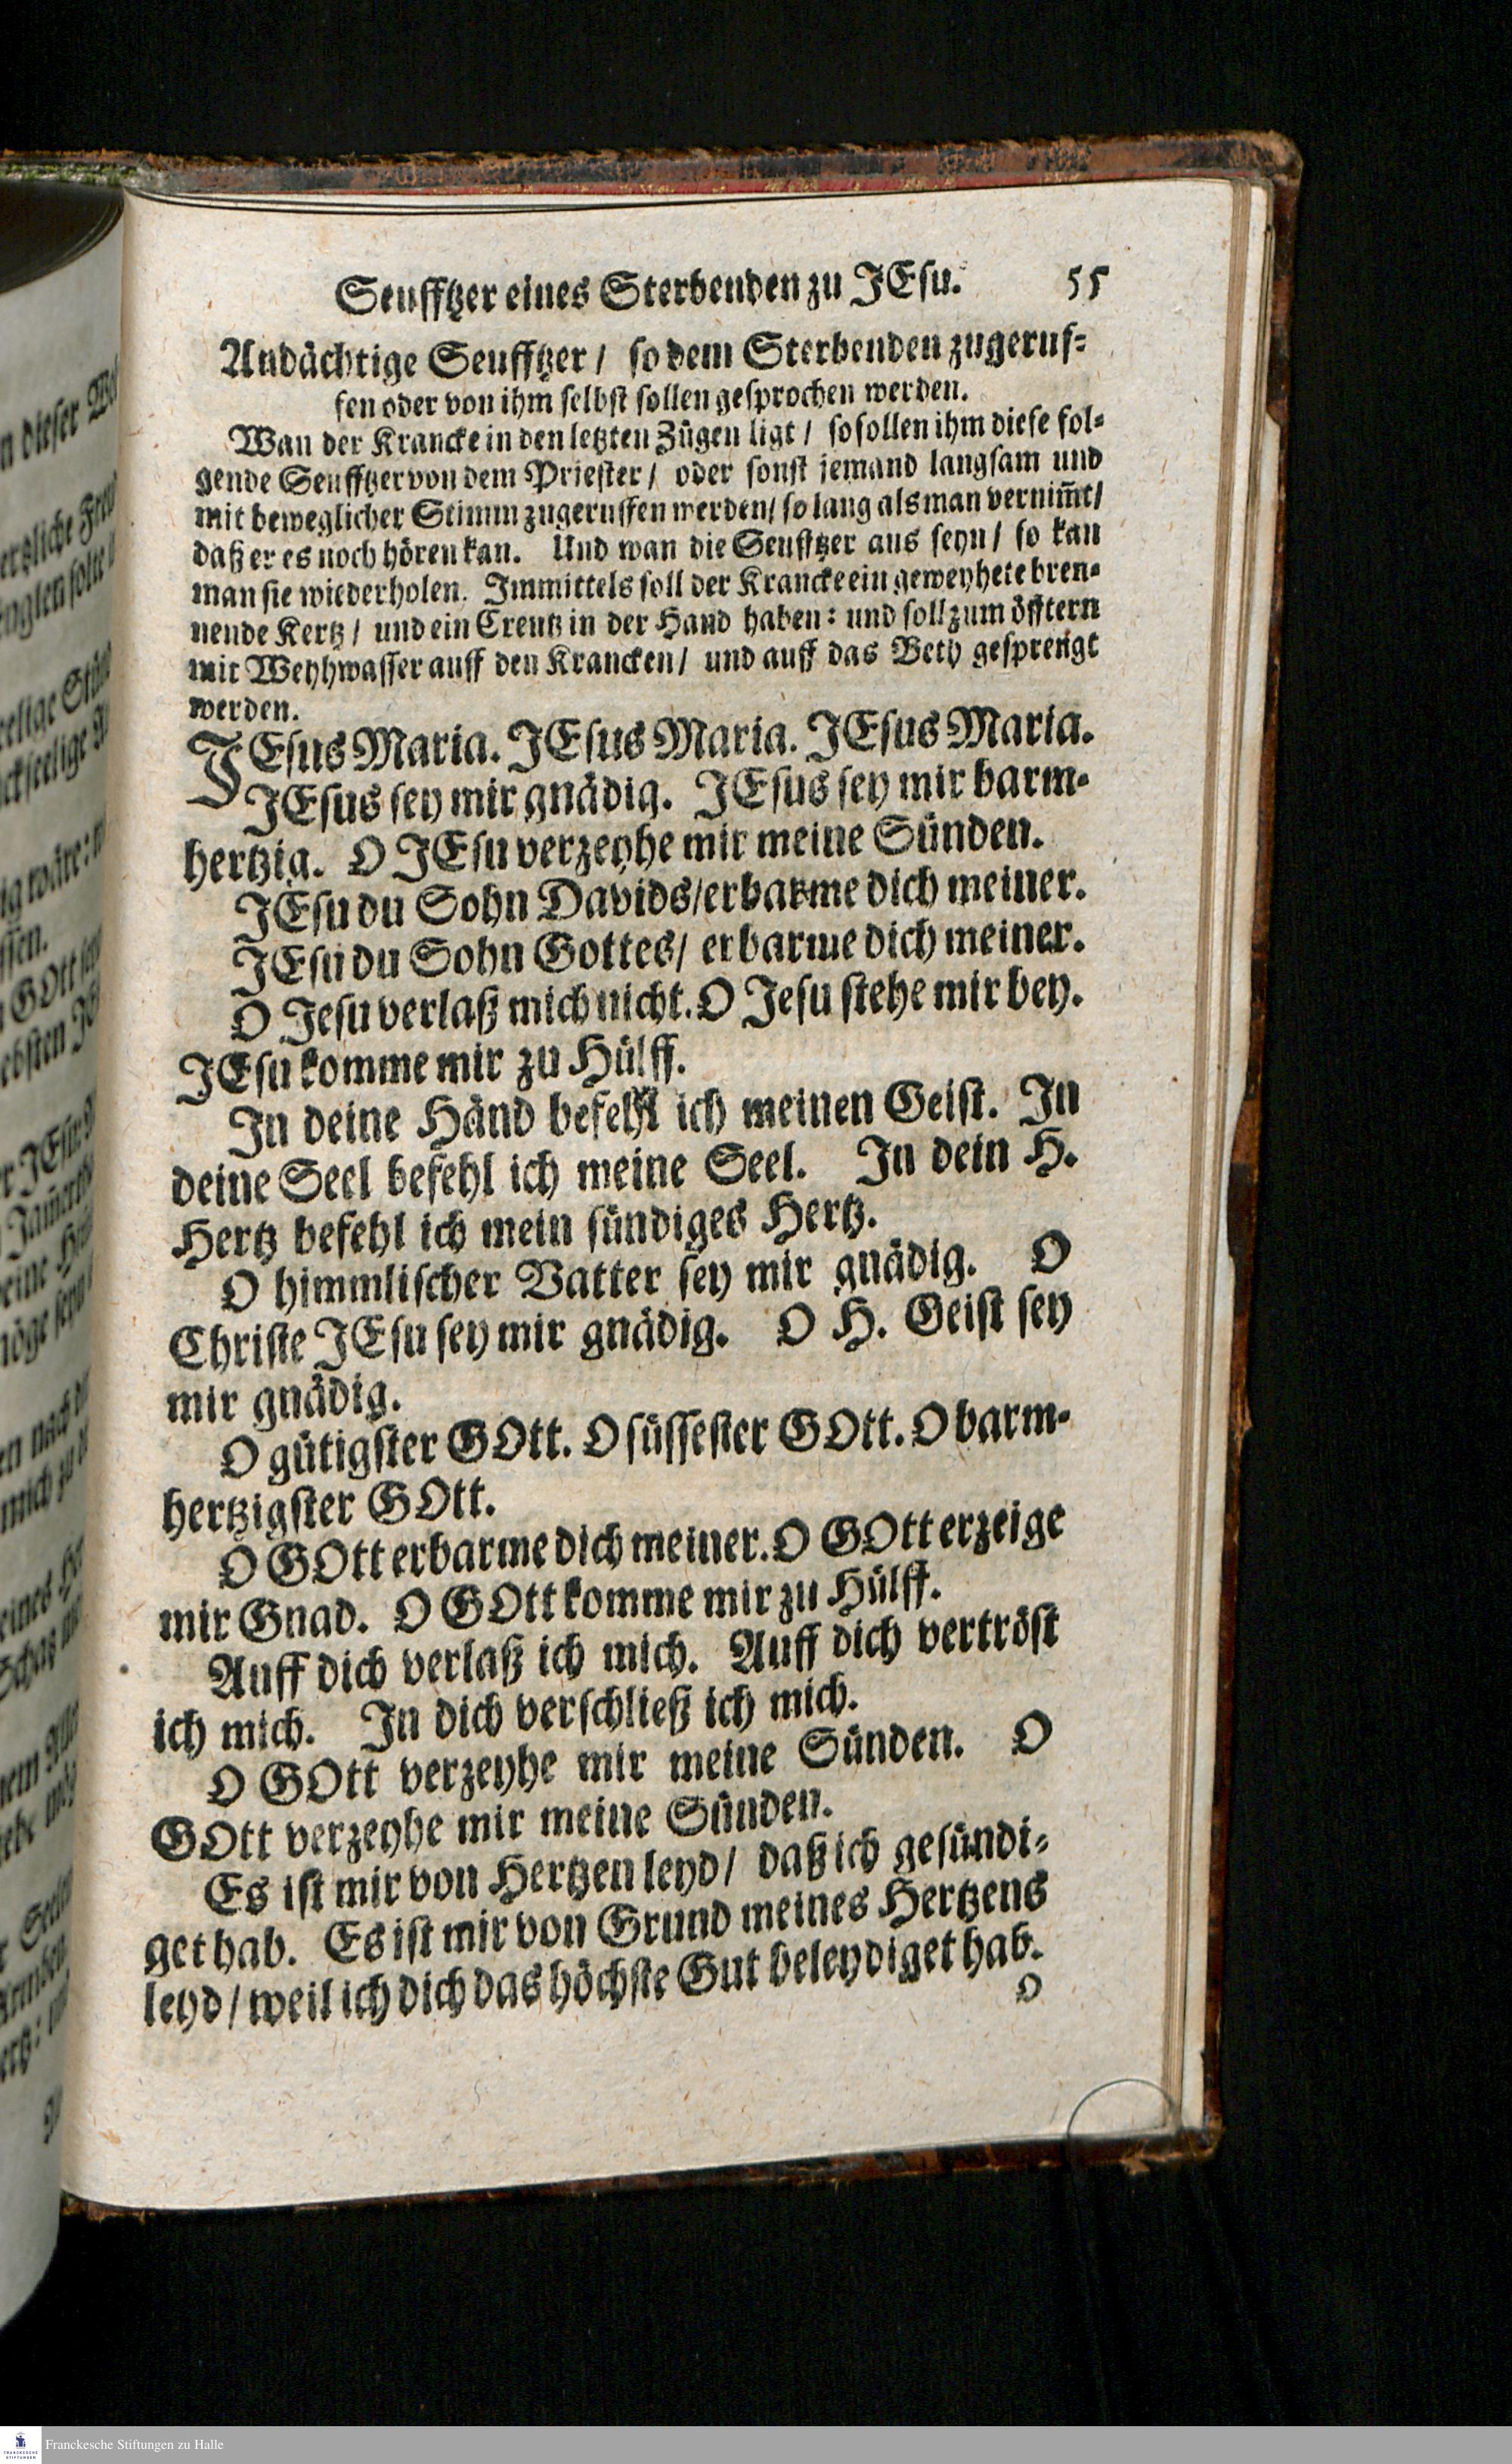 Seufftzer eines Sterbenden zu JEsu. 55
Andächtige Seufftzer / so dem Sterbenden zugeruf-
fen oder von ihm selbst sollen gesprochen werden.
Wan der Krancke in den letzten Zügen ligt / so sollen ihm diese fol-
gende Seufftzer von dem Priester / oder sonst jemand langsam und
mit beweglicher Stimm zugeruffen werden / so lang als man vernim̅t /
daß er es noch hören kan. Und wan die Seufftzer aus seyn / so kan
man sie wiederholen. Immittels soll der Krancke ein geweyhete bren-
nende Kertz / und ein Creutz in der Hand haben: und soll zum öfftern
mit Weyhwasser auff den Krancken / und auff das Beth gesprengt
werden.
JEsus Maria. JEsus Maria. JEsus Maria.
JEsus sey mir gnädig. JEsus sey mir barm-
hertzig. O JEsu verzeyhe mir meine Sünden.
JEsu du Sohn Davids / erbarme dich meiner.
JEsu du Sohn Gottes / erbarme dich meiner.
O Jesu verlaß mich nicht. O Jesu stehe mir bey.
JEsu komme mir zu Hülff.
In deine Händ befehl ich meinen Geist. In
deine Seel befehl ich meine Seel. In dein H.
Hertz befehl ich mein sündiges Hertz.
O himmlischer Vatter sey mir gnädig. O
Christe JEsu sey mir gnädig. O H. Geist sey
mir gnädig.
O gütigster GOtt. O süssester GOtt. O barm-
hertzigster GOtt.
O GOtt erbarme dich meiner. O GOtt erzeige
mir Gnad. O GOtt komme mir zu Hülff.
Auff dich verlaß ich mich. Auff dich vertröst
ich mich. In dich verschließ ich mich.
O GOtt verzeyhe mir meine Sünden. O
GOtt verzeyhe mir meine Sünden.
Es ist mir von Hertzen leyd / daß ich gesündi-
get hab. Es ist mir von Grund meines Hertzens
leyd / weil ich dich das höchste Gut beleydiget hab.
O
Franckesche Stiftungen zu Halle